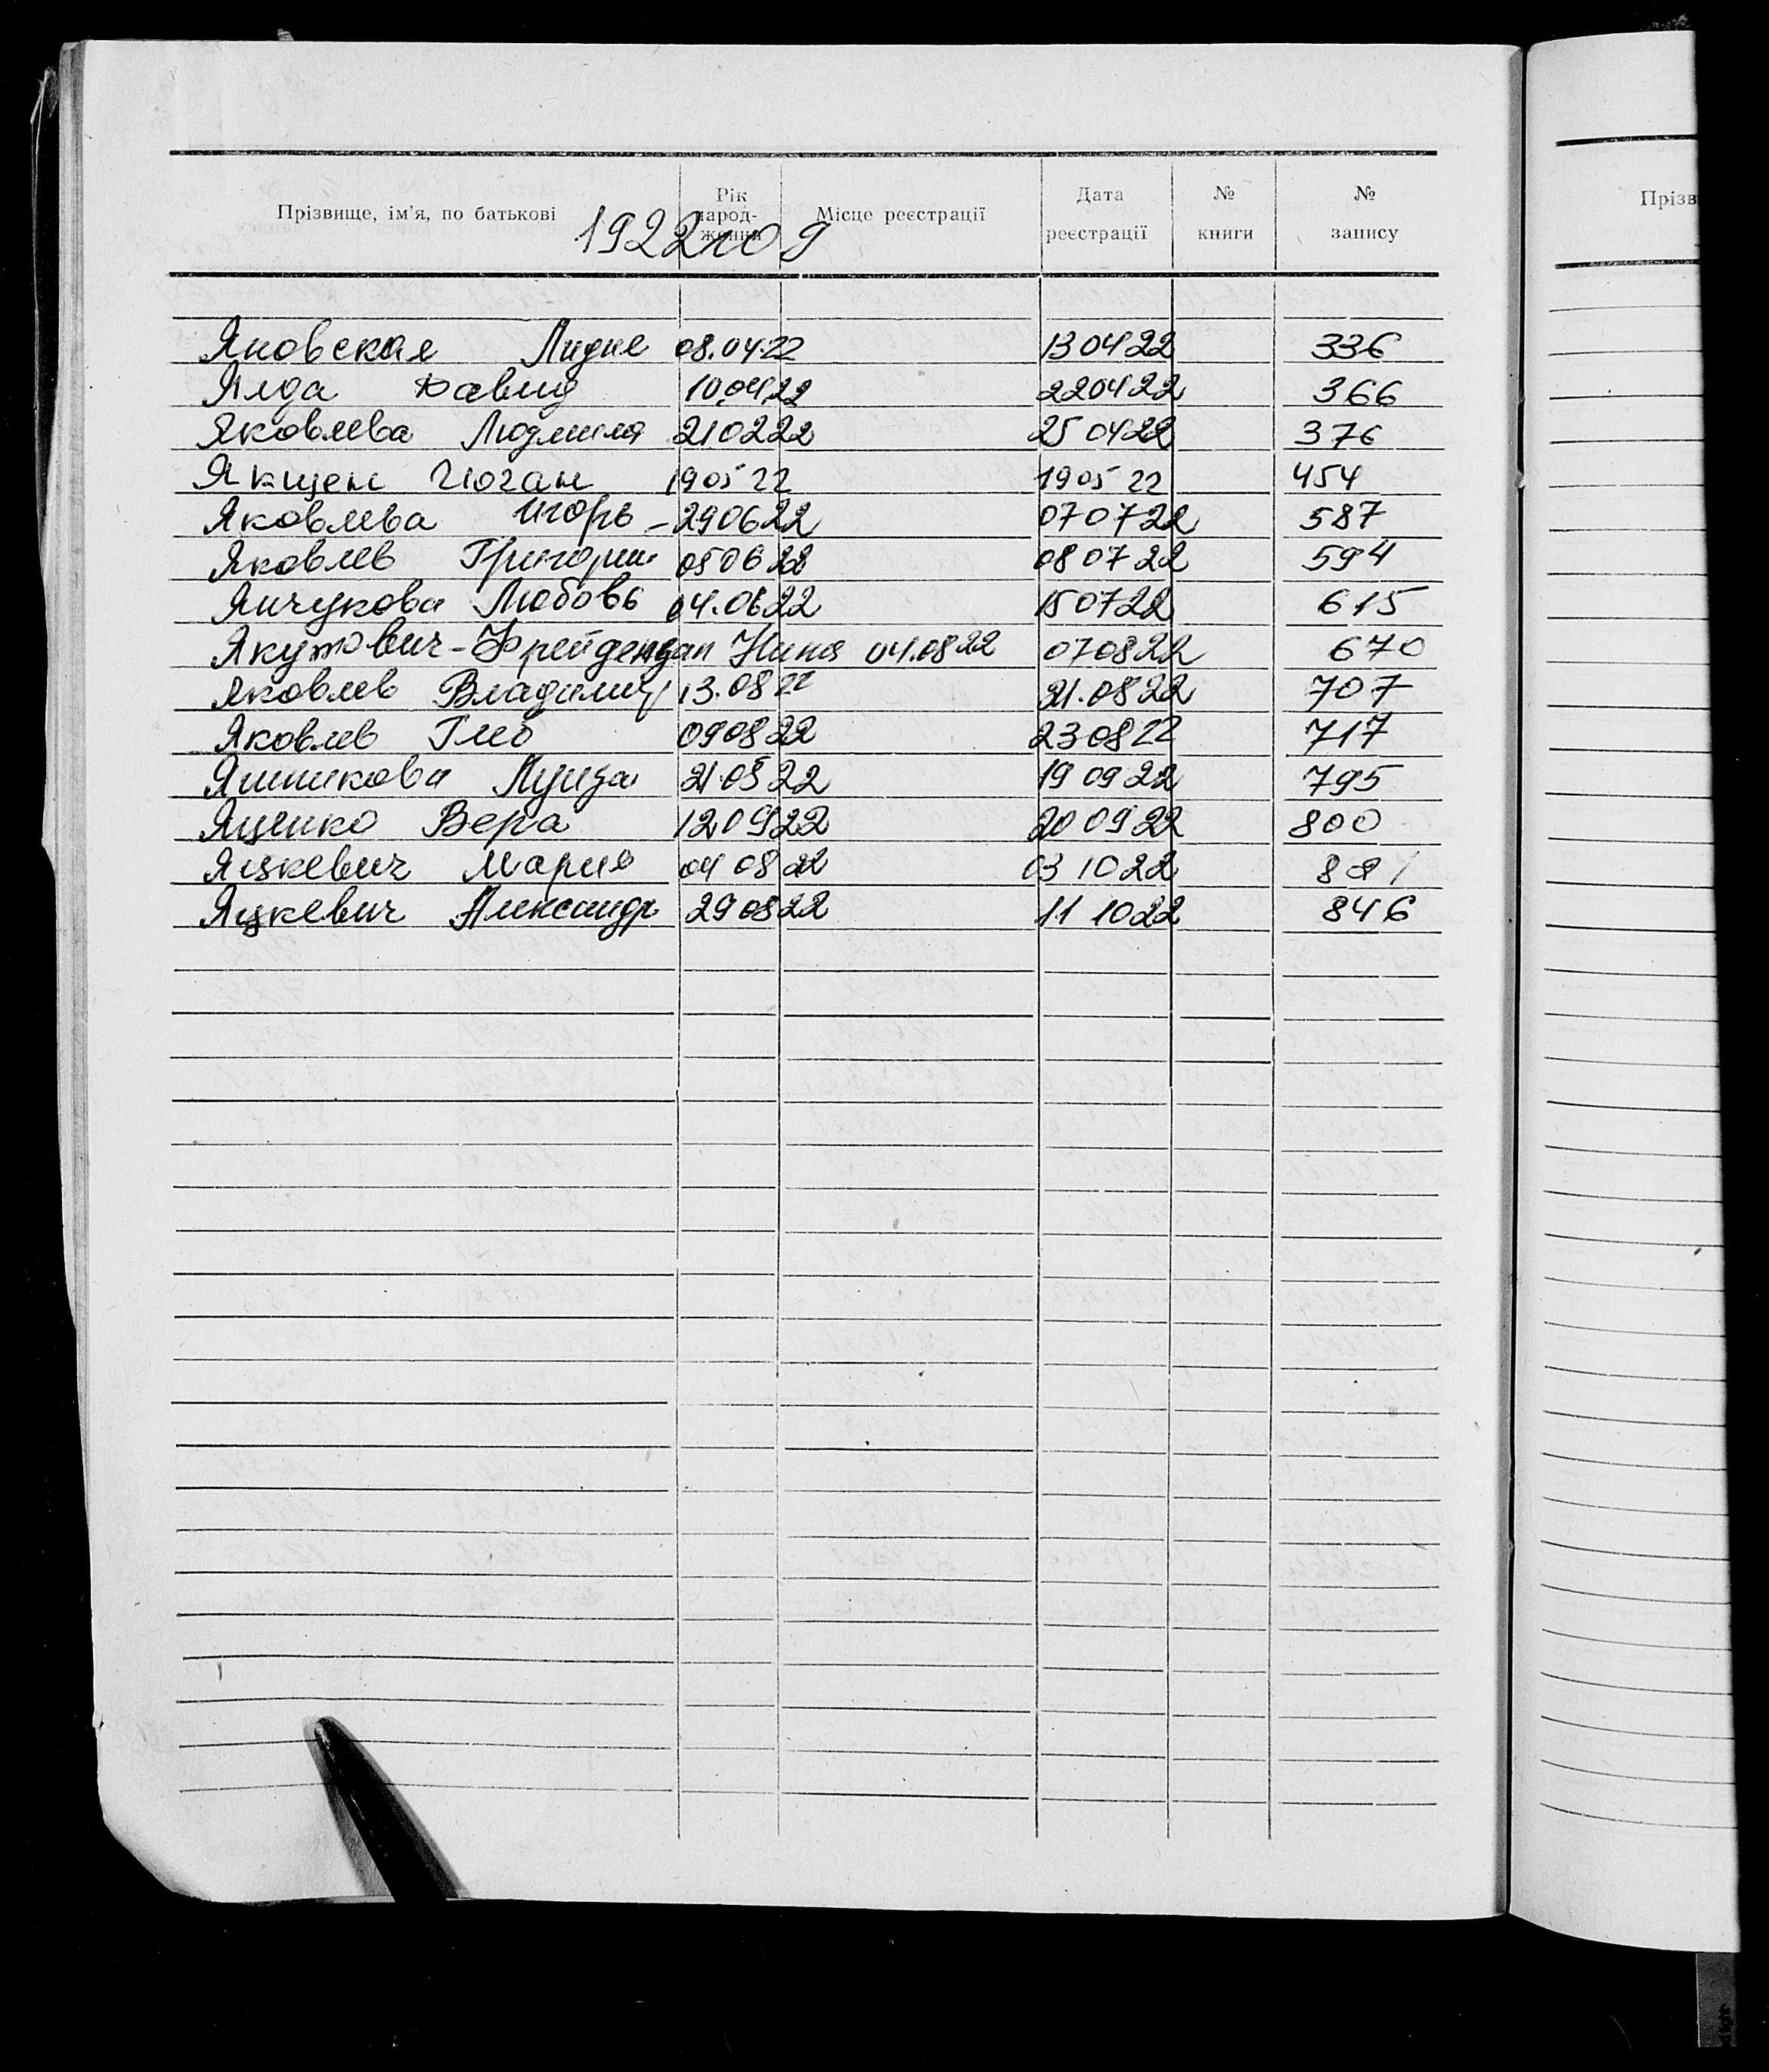 Прізвище, ім'я, по батькові Рік народ-ження Місце реєстрації Дата реєстрації № книги № запису Прізв
1922 год
Яновская Лидия 08.04.22 13 04 22 336
Ялда Давид 10.04.22 22 04 22 366
Яковлева Людмила 21.02 22 25 04 22 376
Якщен Иоган 19 05 22 19 05 22 454
Яковлева Игорь – 29 06 22 07 07 22 587
Яковлев Григорий 05 06 22 08 07 22 594
Янчукова Любовь 04.06 22 15 07 22 615
Якутович-Фрейдендан Нина 04.08 22 07 08 22 670
Яковлев Владимир 13.08 22 21.08 22 707
Яковлев Глеб 09 08 22 23 08 22 717
Яшникова Луиза 21.05 22 19 09 22 795
Яценко Вера 12 09 22 20 09 22 800
Яцкевич Мария 04 08 22 03 10 22
Яцкевич Александр 29 08 22 11 10 22 846